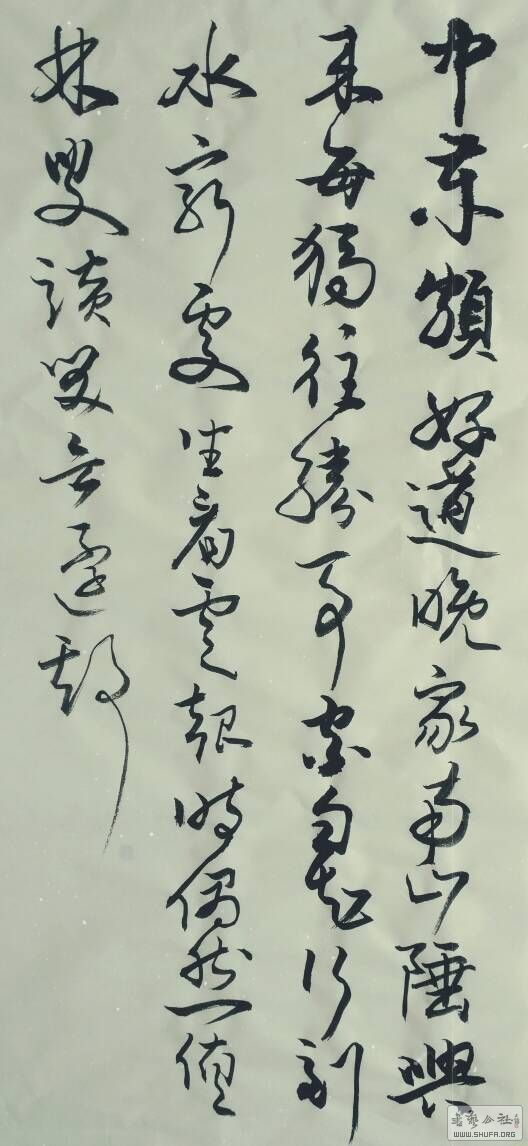 中歲頗好道晚家南山陲興
来每獨往勝事空自知行到
水窮處坐看雲起時偶然值
林叟談笑无還期
书艺公社
WWW.SHUFA.ORG